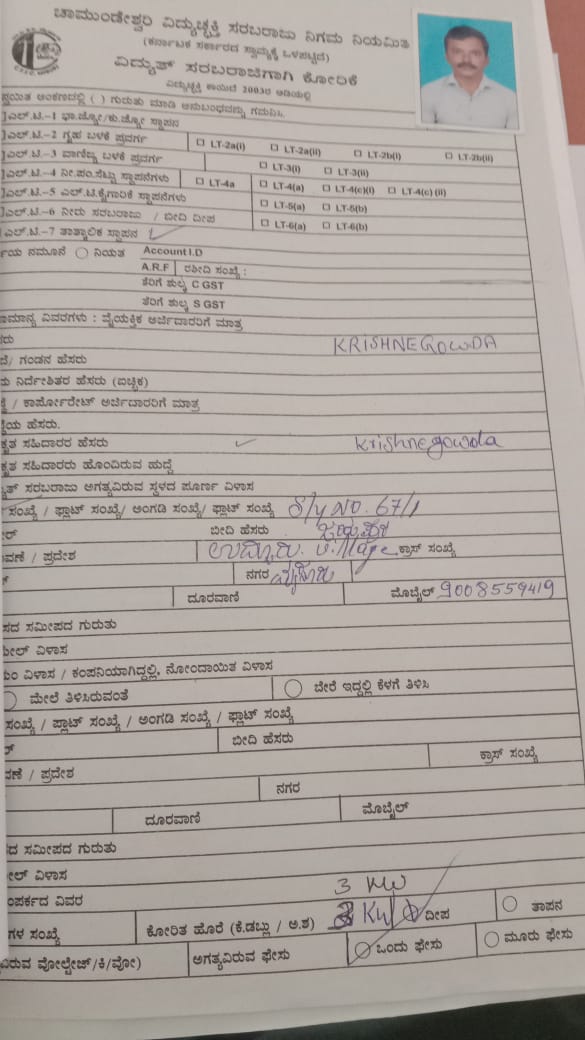 ಚಾಮುಂಡೇಶ್ವರಿ ವಿದ್ಯುಚ್ಛಕ್ತಿ ಸರಬರಾಜು ನಿಗಮ ನಿಯಮಿತ
(ಕರ್ನಾಟಕ ಸರ್ಕಾರದ ಸ್ವಾಮ್ಯಕ್ಕೆ ಒಳಪಟ್ಟಿದೆ)
ವಿದ್ಯುತ್ ಸರಬರಾಜಿಗಾಗಿ ಕೋರಿಕೆ
ವಿದ್ಯುಚ್ಛಕ್ತಿ ಕಾಯಿದೆ 2003ರ ಅಡಿಯಲ್ಲಿ
ಅಂಕಣದಲ್ಲಿ ( ) ಗುರುತು ಮಾಡಿ ಅನುಬಂಧವನ್ನು ಗಮನಿಸಿ.
ಎಲ್.ಟಿ.-1 ಭಾ.ಜ್ಯೋ/ಕು.ಜ್ಯೋ ಸ್ಥಾಪನ
ಎಲ್.ಟಿ.-2 ಗೃಹ ಬಳಕೆ ಪ್ರವರ್ಗ LT-2a(i) LT-2a(ii) LT-2b(i) LT-2b(ii)
ಎಲ್.ಟಿ.-3 ವಾಣಿಜ್ಯ ಬಳಕೆ ಪ್ರವರ್ಗ LT-3(i) LT-3(ii)
ಎಲ್.ಟಿ.-4 ನೀ.ಪಂ.ಸೆಟ್ಟು ಸ್ಥಾಪನೆಗಳು LT-4a LT-4(a) LT-4(c)(i) LT-4(c)(ii)
ಎಲ್.ಟಿ.-5 ಎಲ್.ಟಿ.ಕೈಗಾರಿಕೆ ಸ್ಥಾಪನೆಗಳು LT-5(a) LT-5(b)
ಎಲ್.ಟಿ.-6 ನೀರು ಸರಬರಾಜು / ಬೀದಿ ದೀಪ LT-6(a) LT-6(b)
ಎಲ್.ಟಿ.-7 ತಾತ್ಕಾಲಿಕ ಸ್ಥಾಪನ
ನಮೂನೆ ನಿಯತ Account I.D
A.R.F ರಶೀದಿ ಸಂಖ್ಯೆ :
ತೆರಿಗೆ ಶುಲ್ಕ C GST
ತೆರಿಗೆ ಶುಲ್ಕ S GST
ವಿವರಗಳು : ವೈಯಕ್ತಿಕ ಅರ್ಜಿದಾರರಿಗೆ ಮಾತ್ರ
KRISHNEGOWDA
ಗಂಡನ ಹೆಸರು
ನಿರ್ದೇಶಿತರ ಹೆಸರು (ಐಚ್ಛಿಕ)
/ ಕಾರ್ಪೋರೇಟ್ ಅರ್ಜಿದಾರರಿಗೆ ಮಾತ್ರ
ಹೆಸರು.
ಸಹಿದಾರರ ಹೆಸರು Krishnegowda
ಸಹಿದಾರರು ಹೊಂದಿರುವ ಹುದ್ದೆ
ಸರಬರಾಜು ಅಗತ್ಯವಿರುವ ಸ್ಥಳದ ಪೂರ್ಣ ವಿಳಾಸ
ಸಂಖ್ಯೆ / ಫ್ಲಾಟ್ ಸಂಖ್ಯೆ/ ಅಂಗಡಿ ಸಂಖ್ಯೆ/ ಫ್ಲಾಟ್ ಸಂಖ್ಯೆ S/y NO. 67/1
ಬೀದಿ ಹೆಸರು
/ ಪ್ರದೇಶ village ಕ್ರಾಸ್ ಸಂಖ್ಯೆ
ನಗರ ಮೈಸೂರು
ದೂರವಾಣಿ ಮೊಬೈಲ್ 9008559419
ಸಮೀಪದ ಗುರುತು
ವಿಳಾಸ
ವಿಳಾಸ / ಕಂಪನಿಯಾಗಿದ್ದಲ್ಲಿ, ನೋಂದಾಯಿತ ವಿಳಾಸ
ಮೇಲೆ ತಿಳಿಸಿರುವಂತೆ ಬೇರೆ ಇದ್ದಲ್ಲಿ ಕೆಳಗೆ ತಿಳಿಸಿ
ಸಂಖ್ಯೆ / ಪ್ಲಾಟ್ ಸಂಖ್ಯೆ / ಅಂಗಡಿ ಸಂಖ್ಯೆ / ಫ್ಲಾಟ್ ಸಂಖ್ಯೆ
ಬೀದಿ ಹೆಸರು
/ ಪ್ರದೇಶ ಕ್ರಾಸ್ ಸಂಖ್ಯೆ
ನಗರ
ದೂರವಾಣಿ ಮೊಬೈಲ್
ಸಮೀಪದ ಗುರುತು
ವಿಳಾಸ
ವಿವರ 3 KW
ಸಂಖ್ಯೆ ಕೋರಿತ ಹೊರೆ (ಕೆ.ಡಬ್ಲು / ಅ.ಶ) KW ದೀಪ ತಾಪನ
ವೋಲ್ಟೇಜ್/ಕಿ/ವೋ) ಅಗತ್ಯವಿರುವ ಫೇಸು ಒಂದು ಫೇಸು ಮೂರು ಫೇಸು